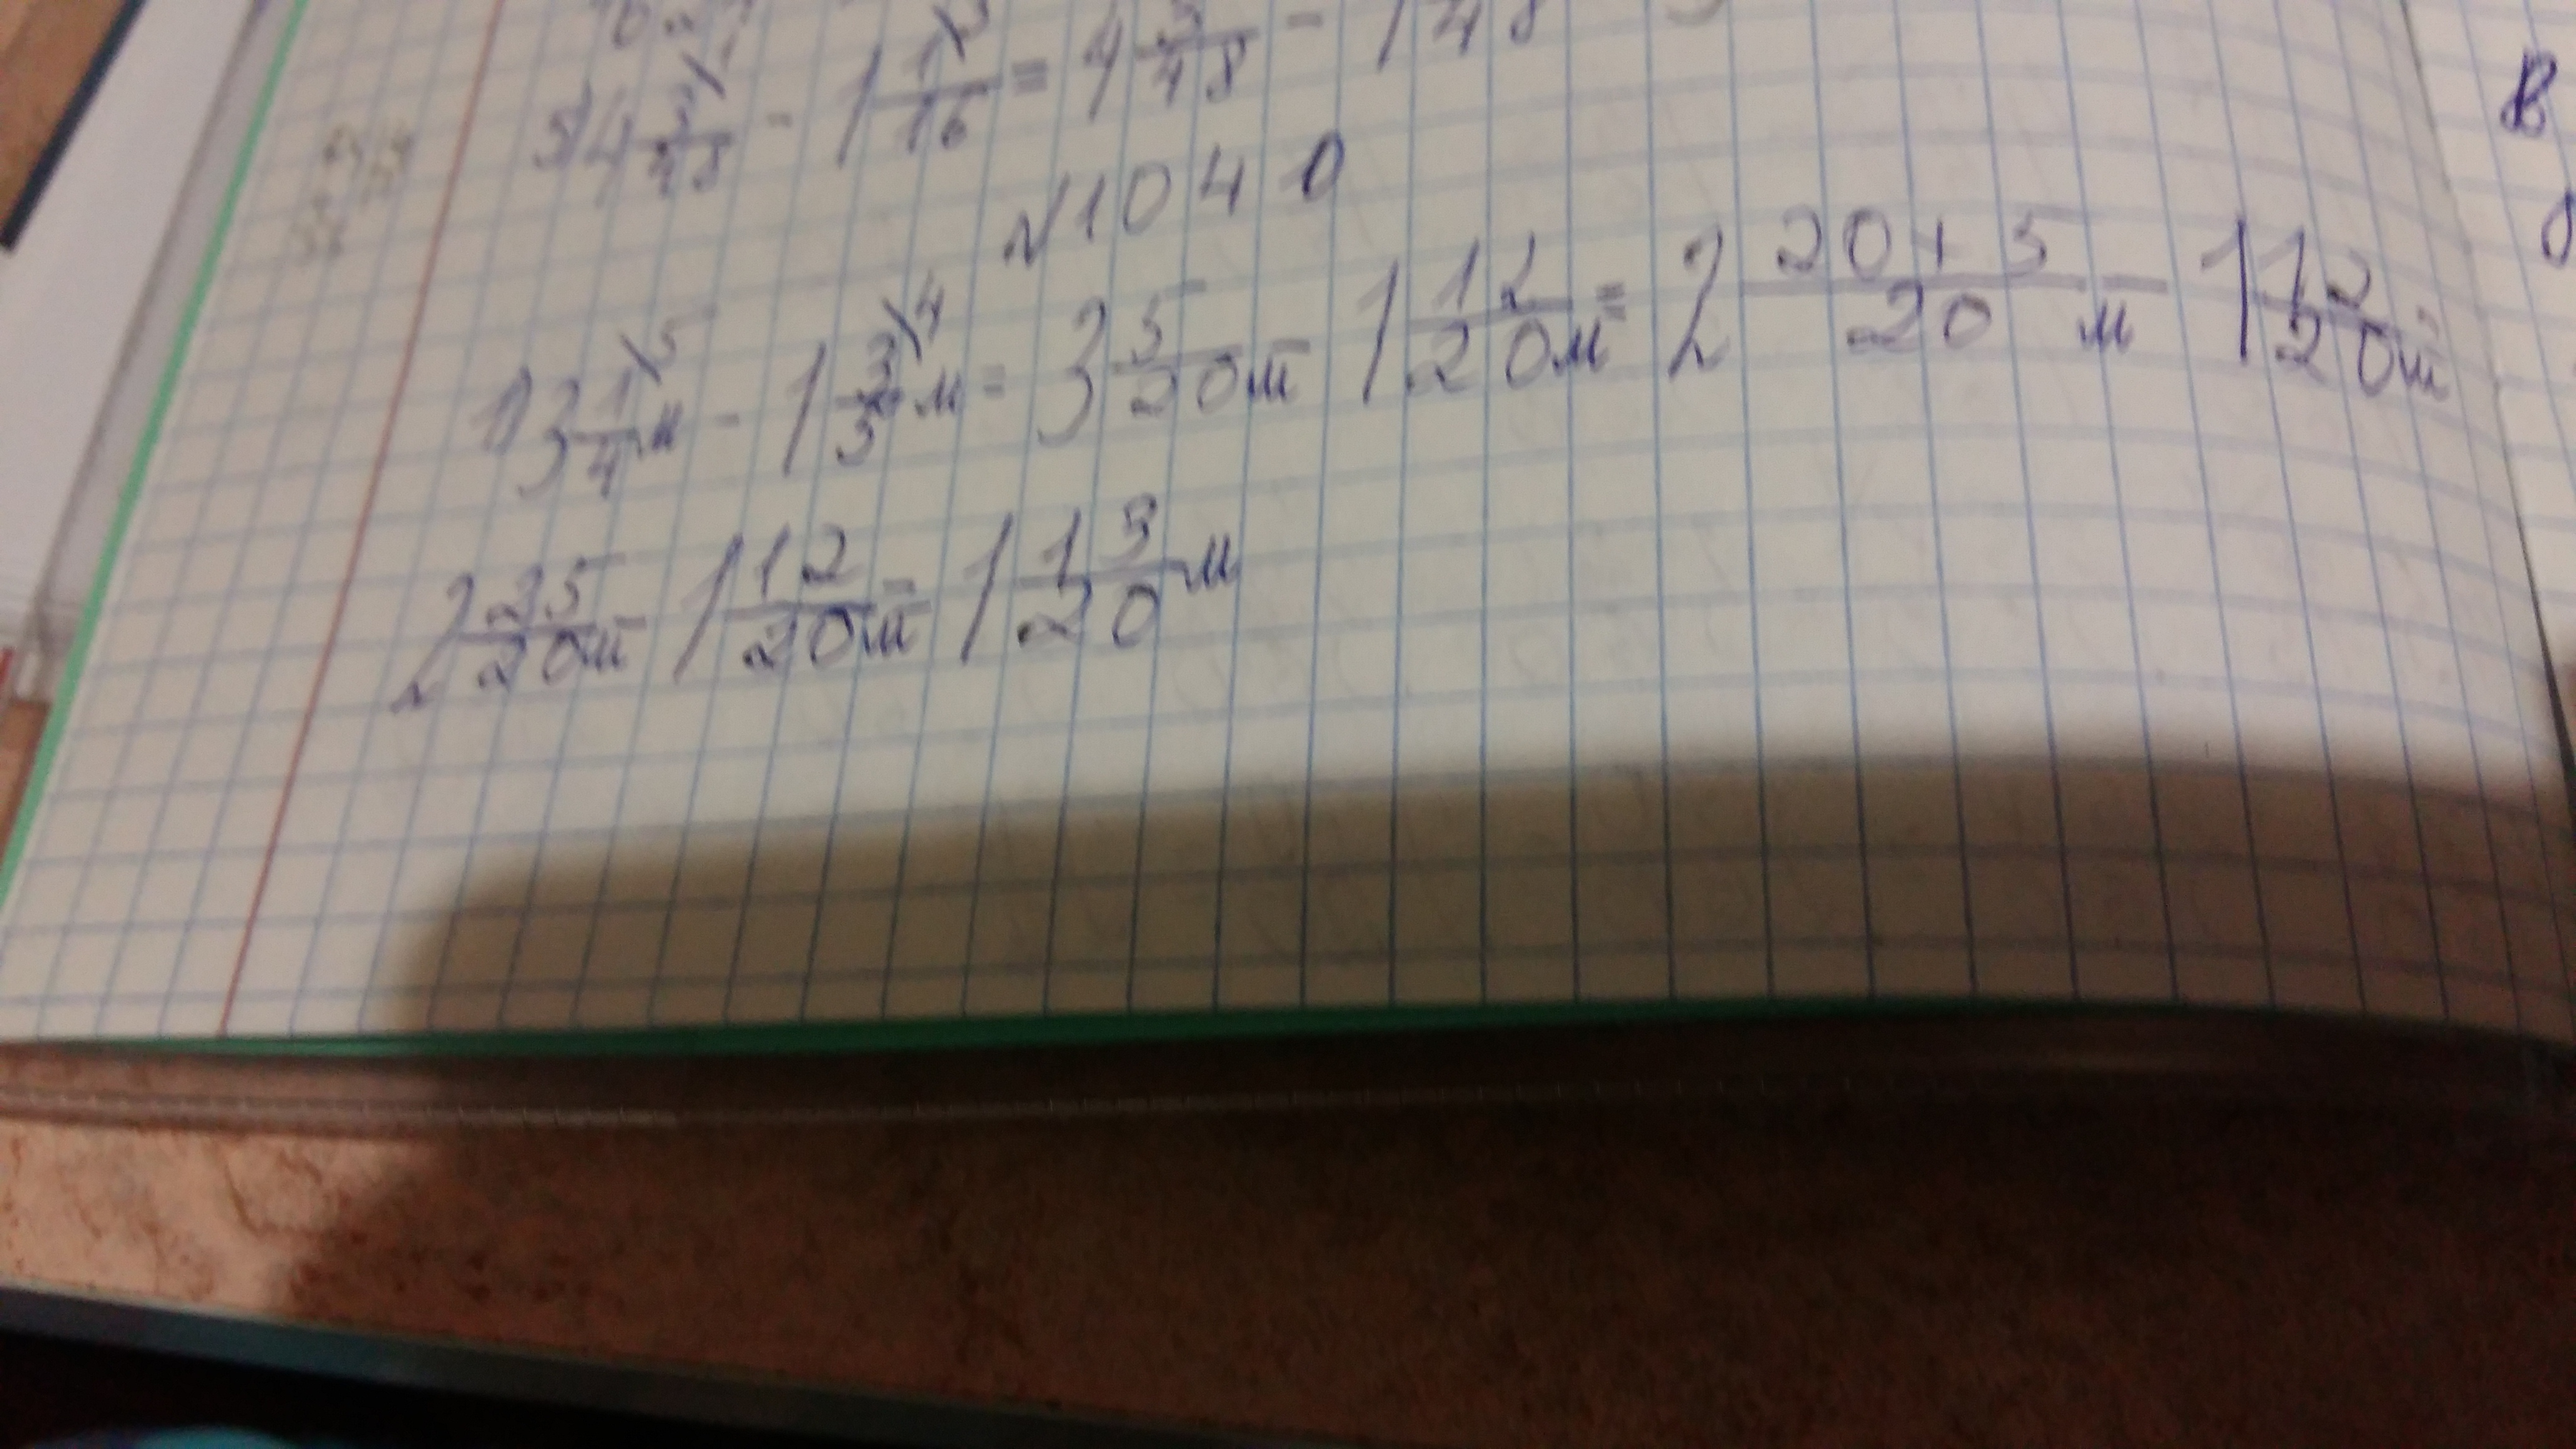 5) 4 3\1/48 - 1 1\3/16 = 4 3/48 - 1 /48
№1040
1) 3 1\5/4 м - 1 3\4/5 м = 3 5/20 м - 1 12/20 м = 2 20+5/20 м - 1 12/20 м =
2 25/20 м - 1 12/20 м = 1 13/20 м
В